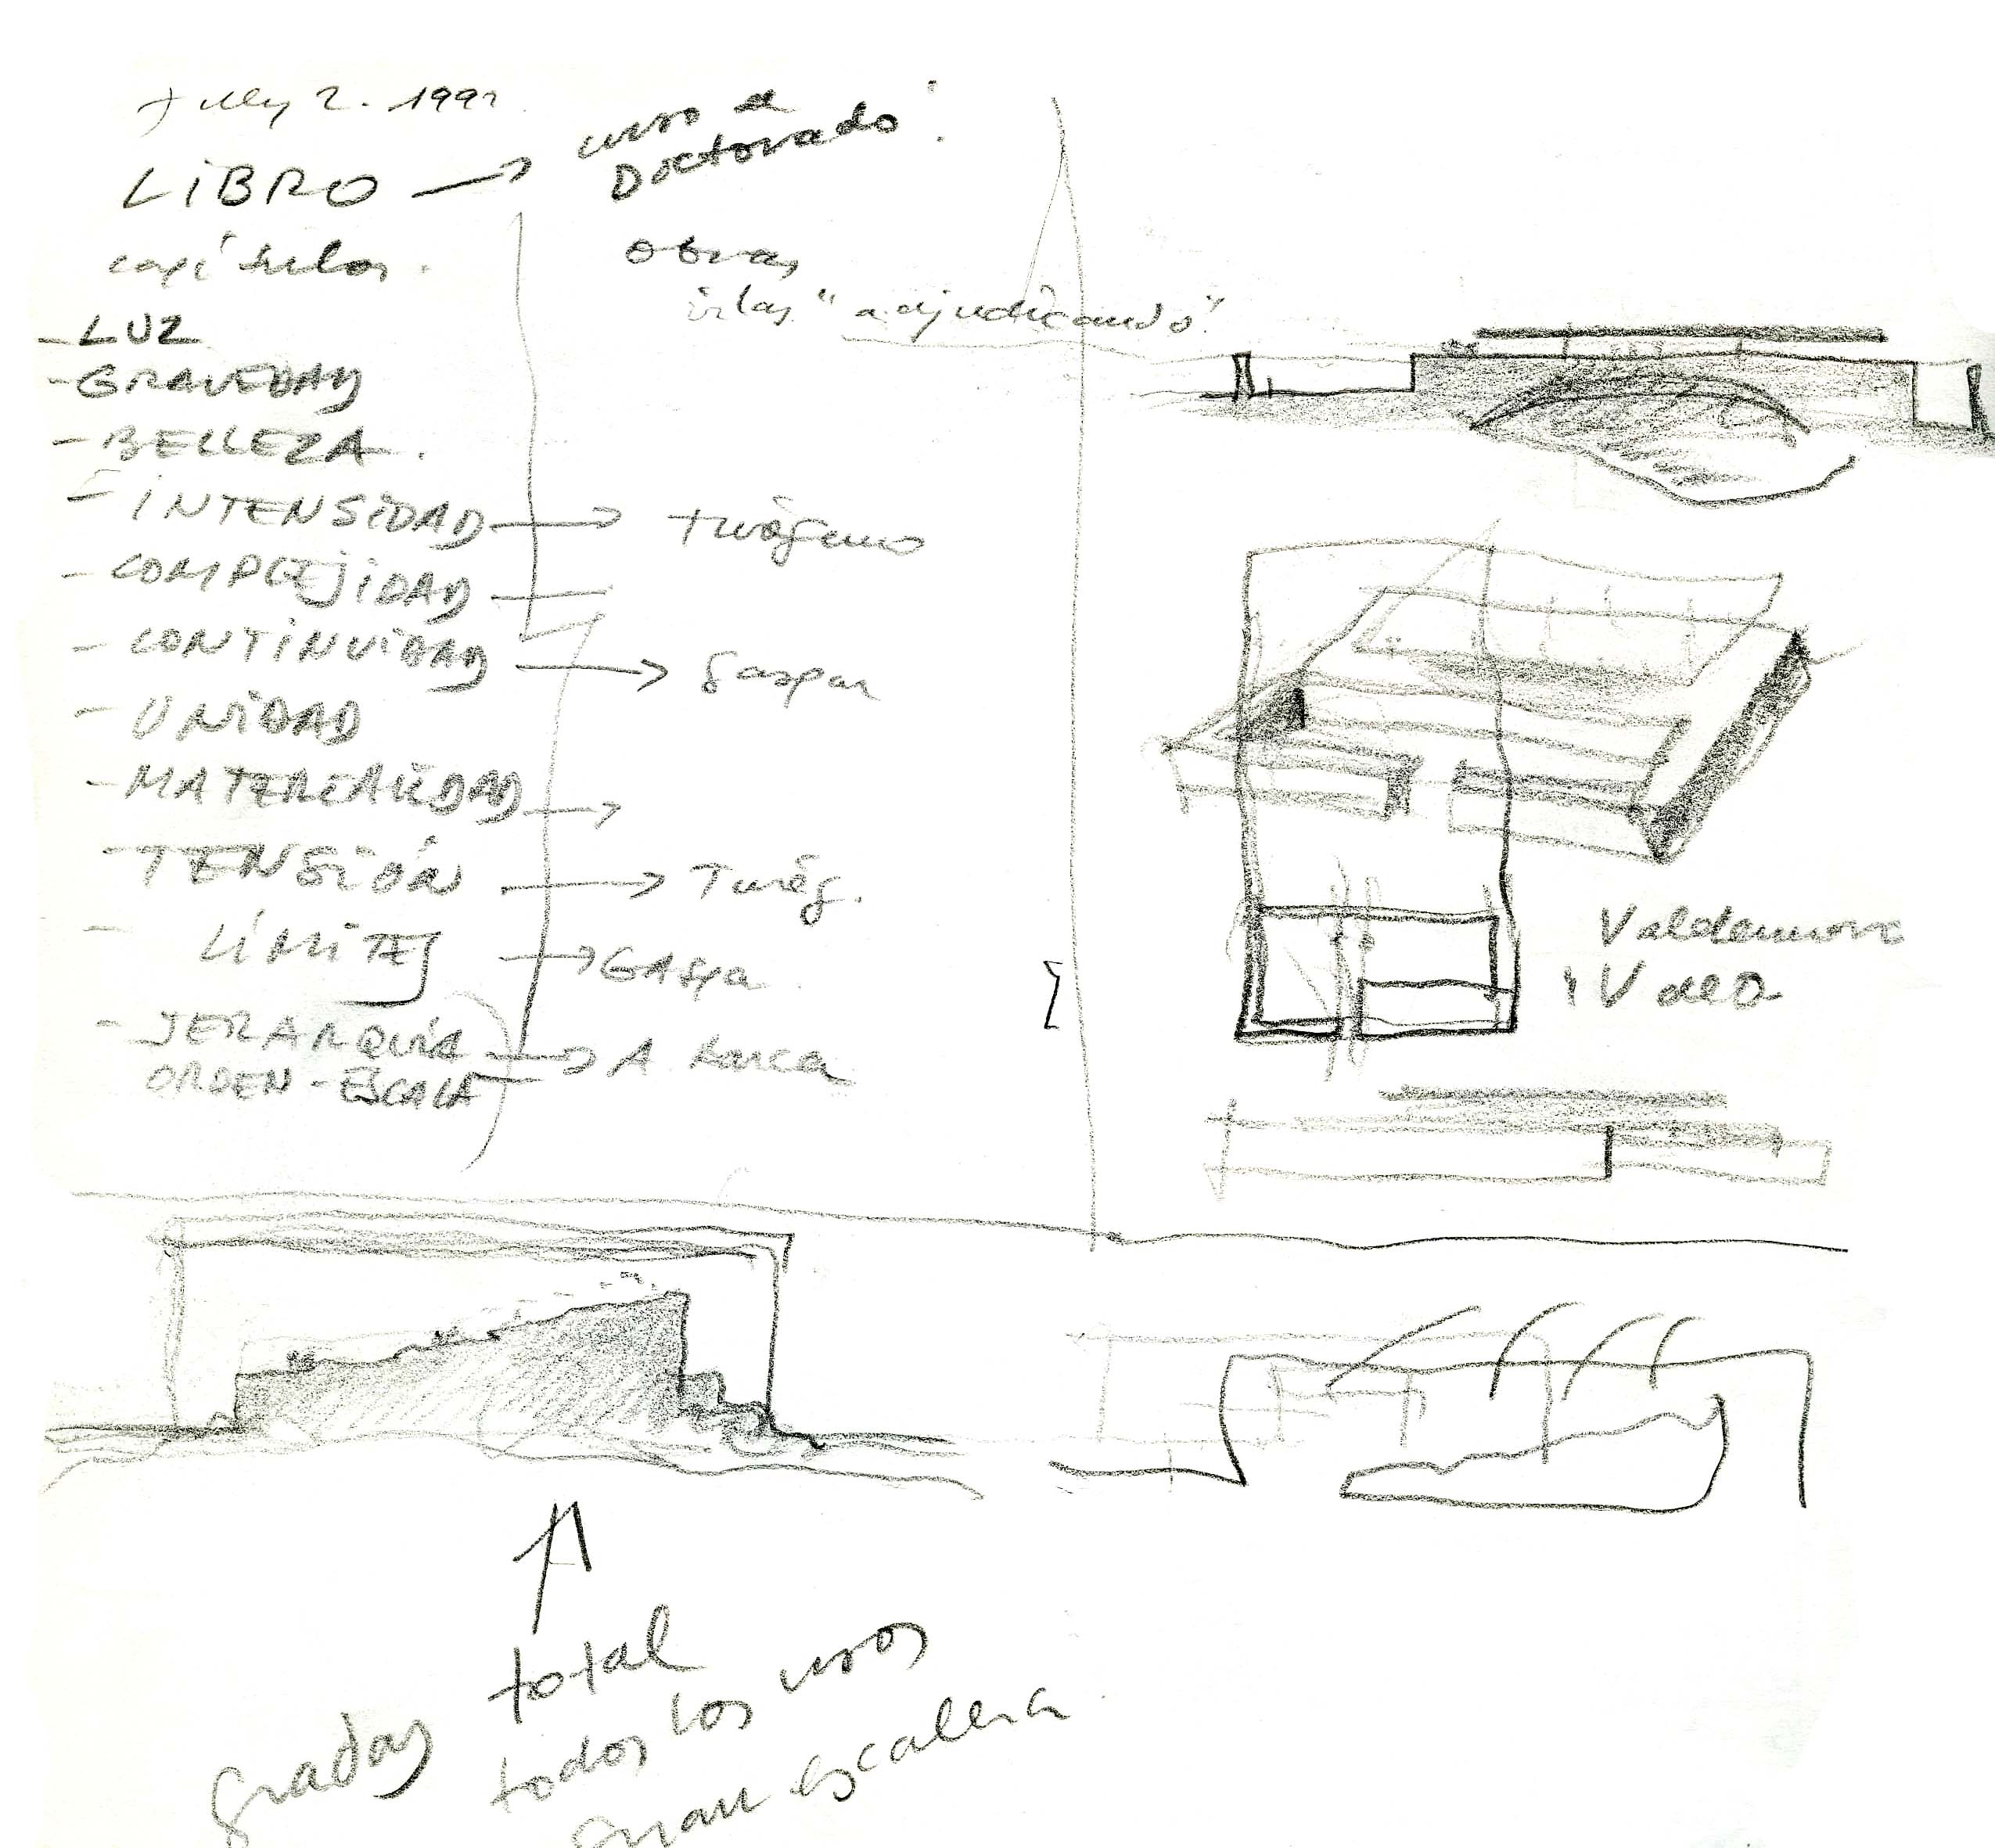 July 2. 1992
LiBRO → curso de Doctorado.
capítulos.
obras
irlas "adjudicando".
- LUZ
- GRAVEDAD
- BELLEZA.
- INTENSIDAD → turégano
- COMPLEJIDAD —
- CONTINUIDAD → Gaspar
- UNIDAD
- MATERIALIDAD →
- TENSIÓN → Turég.
- LÍMITES → GASpa.
- JERARQUÍA → A
ORDEN - ESCALA
total
gradas todos los usos
gran escalera